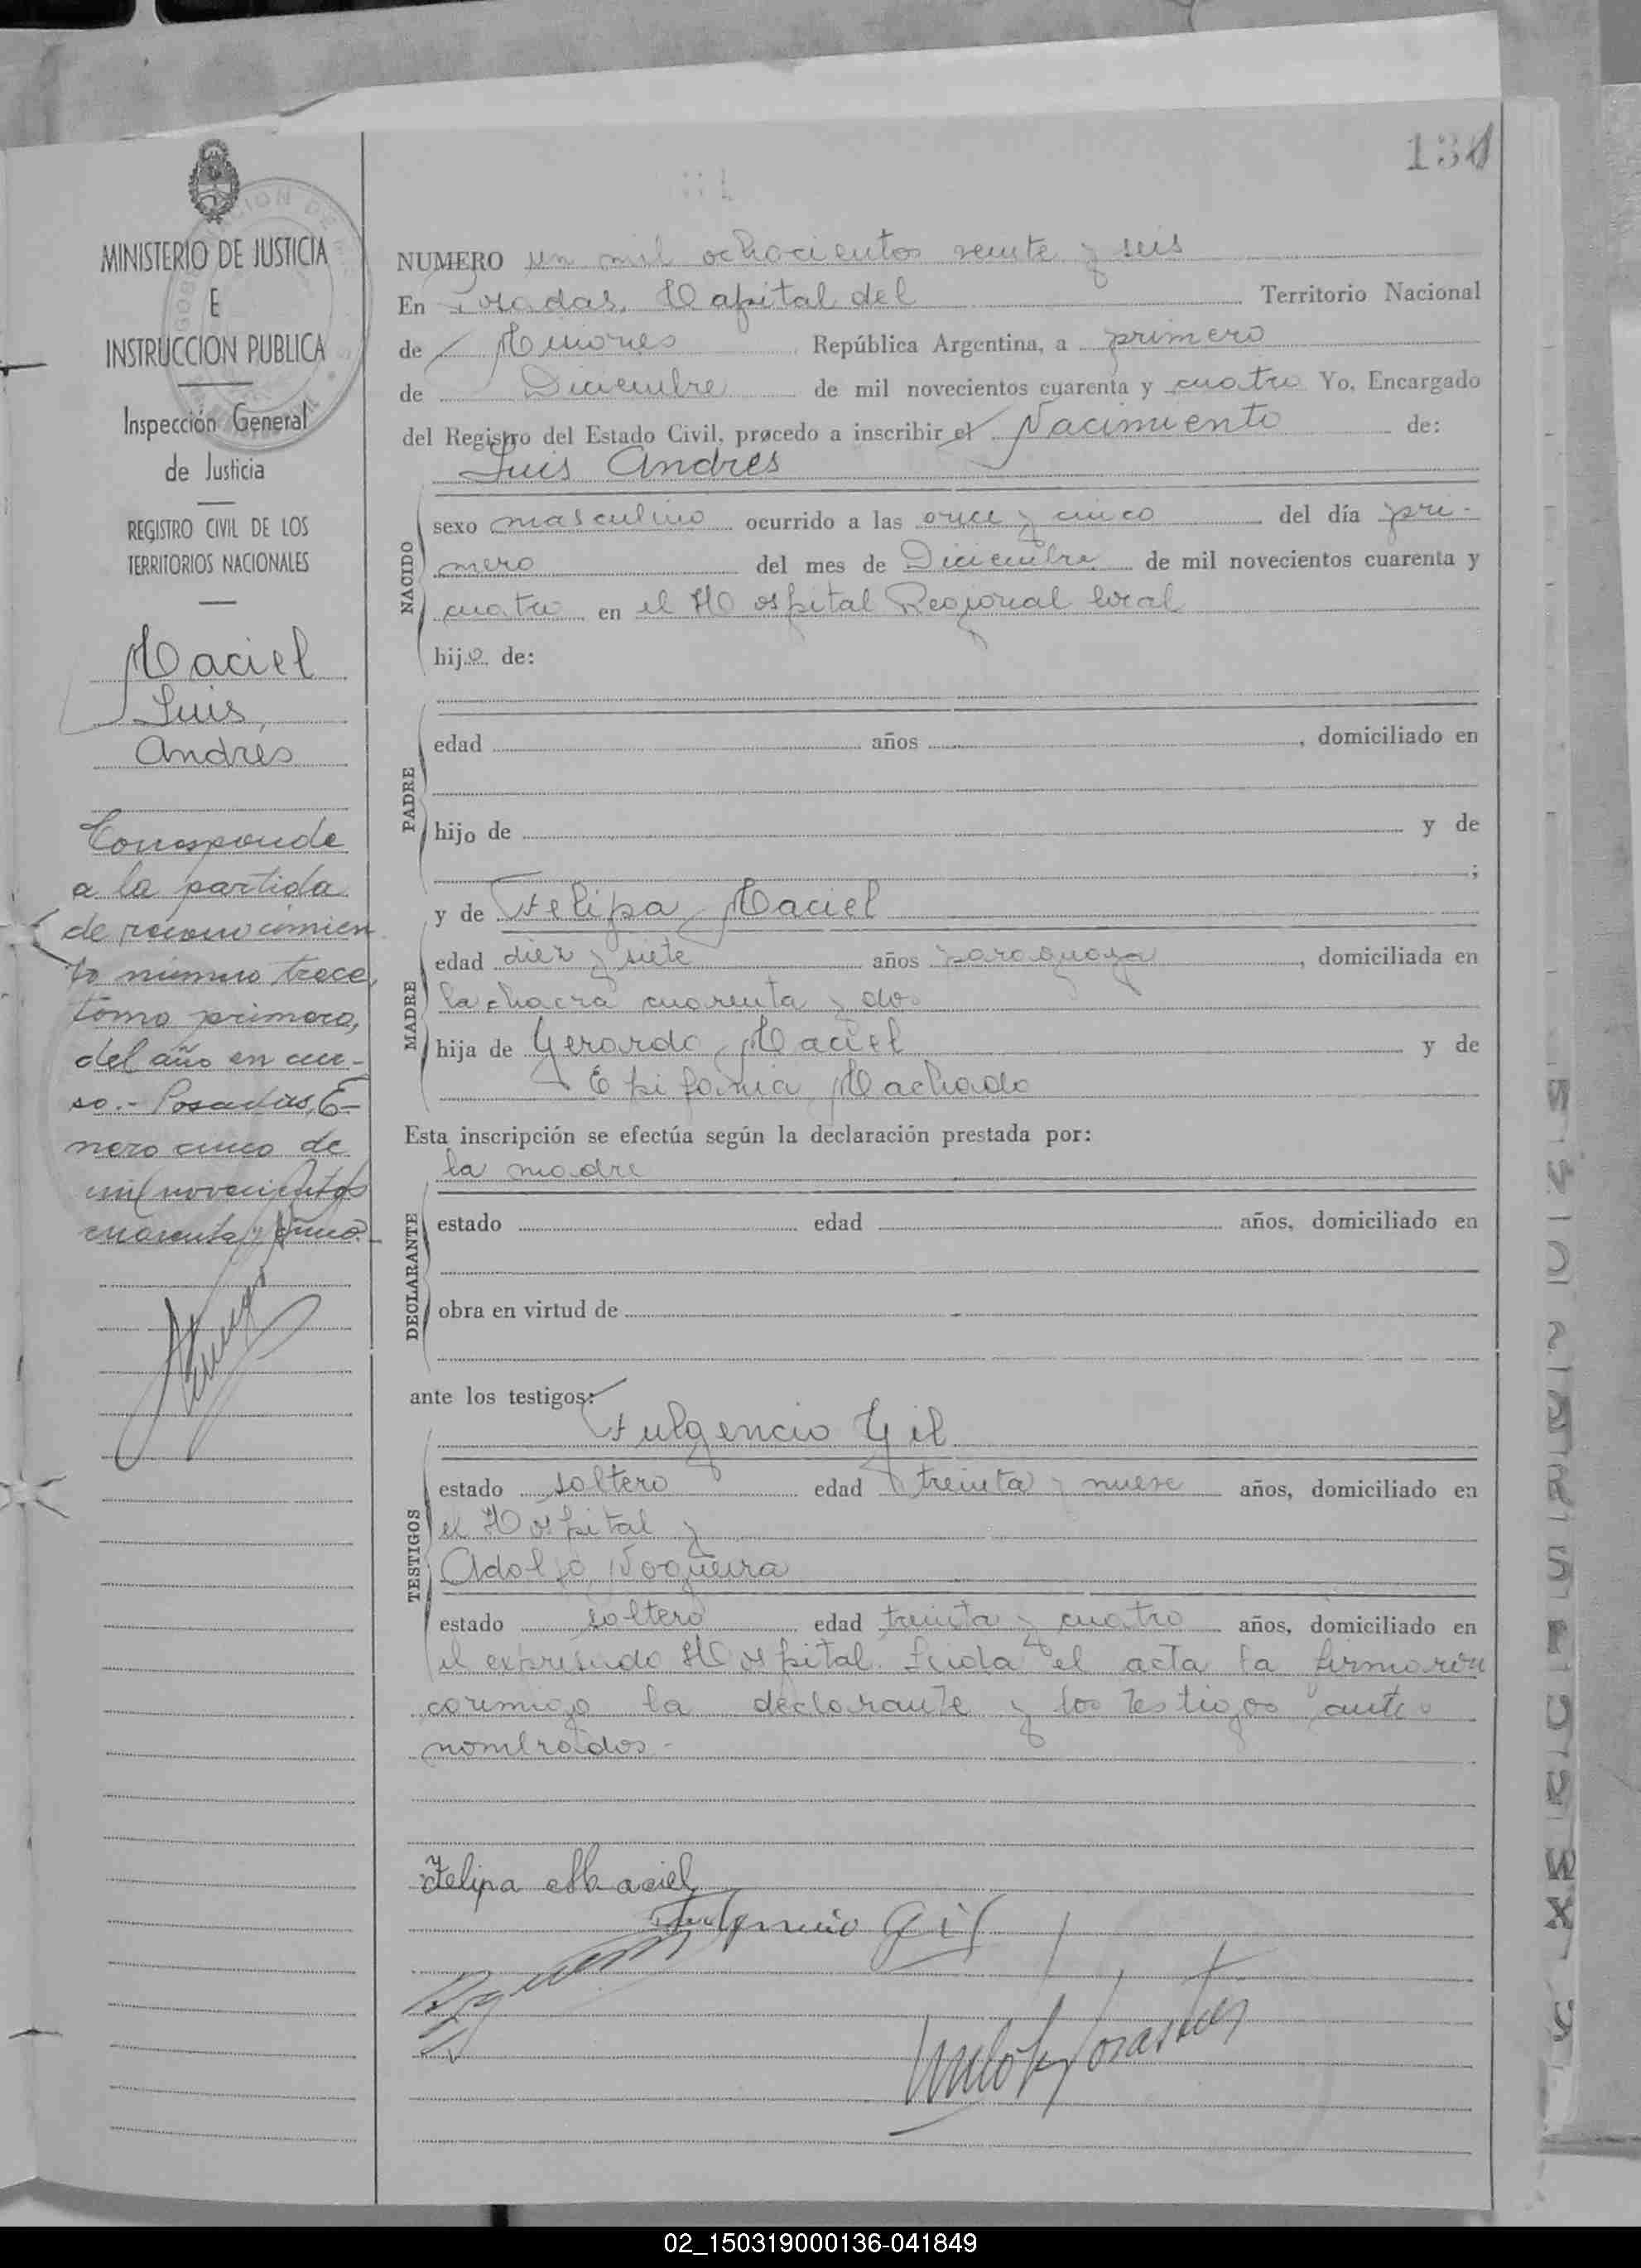 MINISTERIO DE JUSTICIA
E
INSTRUCCION PUBLICA
Inspección General
de Justicia
REGISTRO CIVIL DE LOS
TERRITORIOS NACIONALES
Maciel
Luis,
Andres
Corresponde
a la partida
de reconocimien
to número trece,
tomo primero,
del año en cur-
so.- Posadas, E-
nero cinco de
mil novecientos
cuarenta y cinco.-
NUMERO un mil ochocientos veinte y seis
En Posadas, Capital del Territorio Nacional
de Misiones República Argentina, a primero
de Diciembre de mil novecientos cuarenta y cuatro Yo, Encargado
del Registro del Estado Civil, procedo a inscribir el Nacimiento de:
Luis Andres
NACIDO
sexo masculino ocurrido a las once y cinco del día pri-
mero del mes de Diciembre de mil novecientos cuarenta y
cuatro en el Hospital Regional local
hijo de:
PADRE
edad años , domiciliado en
hijo de y de
;
MADRE
y de Felipa Maciel
edad diez y siete años paraguaya , domiciliada en
la chacra cuarenta y dos
hija de Gerardo Maciel y de
Epifania Machado
Esta inscripción se efectúa según la declaración prestada por:
la madre
DECLARANTE
estado edad años, domiciliado en
obra en virtud de
ante los testigos:
Fulgencio Gil
TESTIGOS
estado soltero edad treinta y nueve años, domiciliado en
el Hospital y
Adolfo Nogueira
estado soltero edad treinta y cuatro años, domiciliado en
el expresado Hospital. Leida el acta la firmaron
conmigo la declarante y los testigos ante
nombrados.-
Felipa Maciel
Fulgencio Gil
02_150319000136-041849